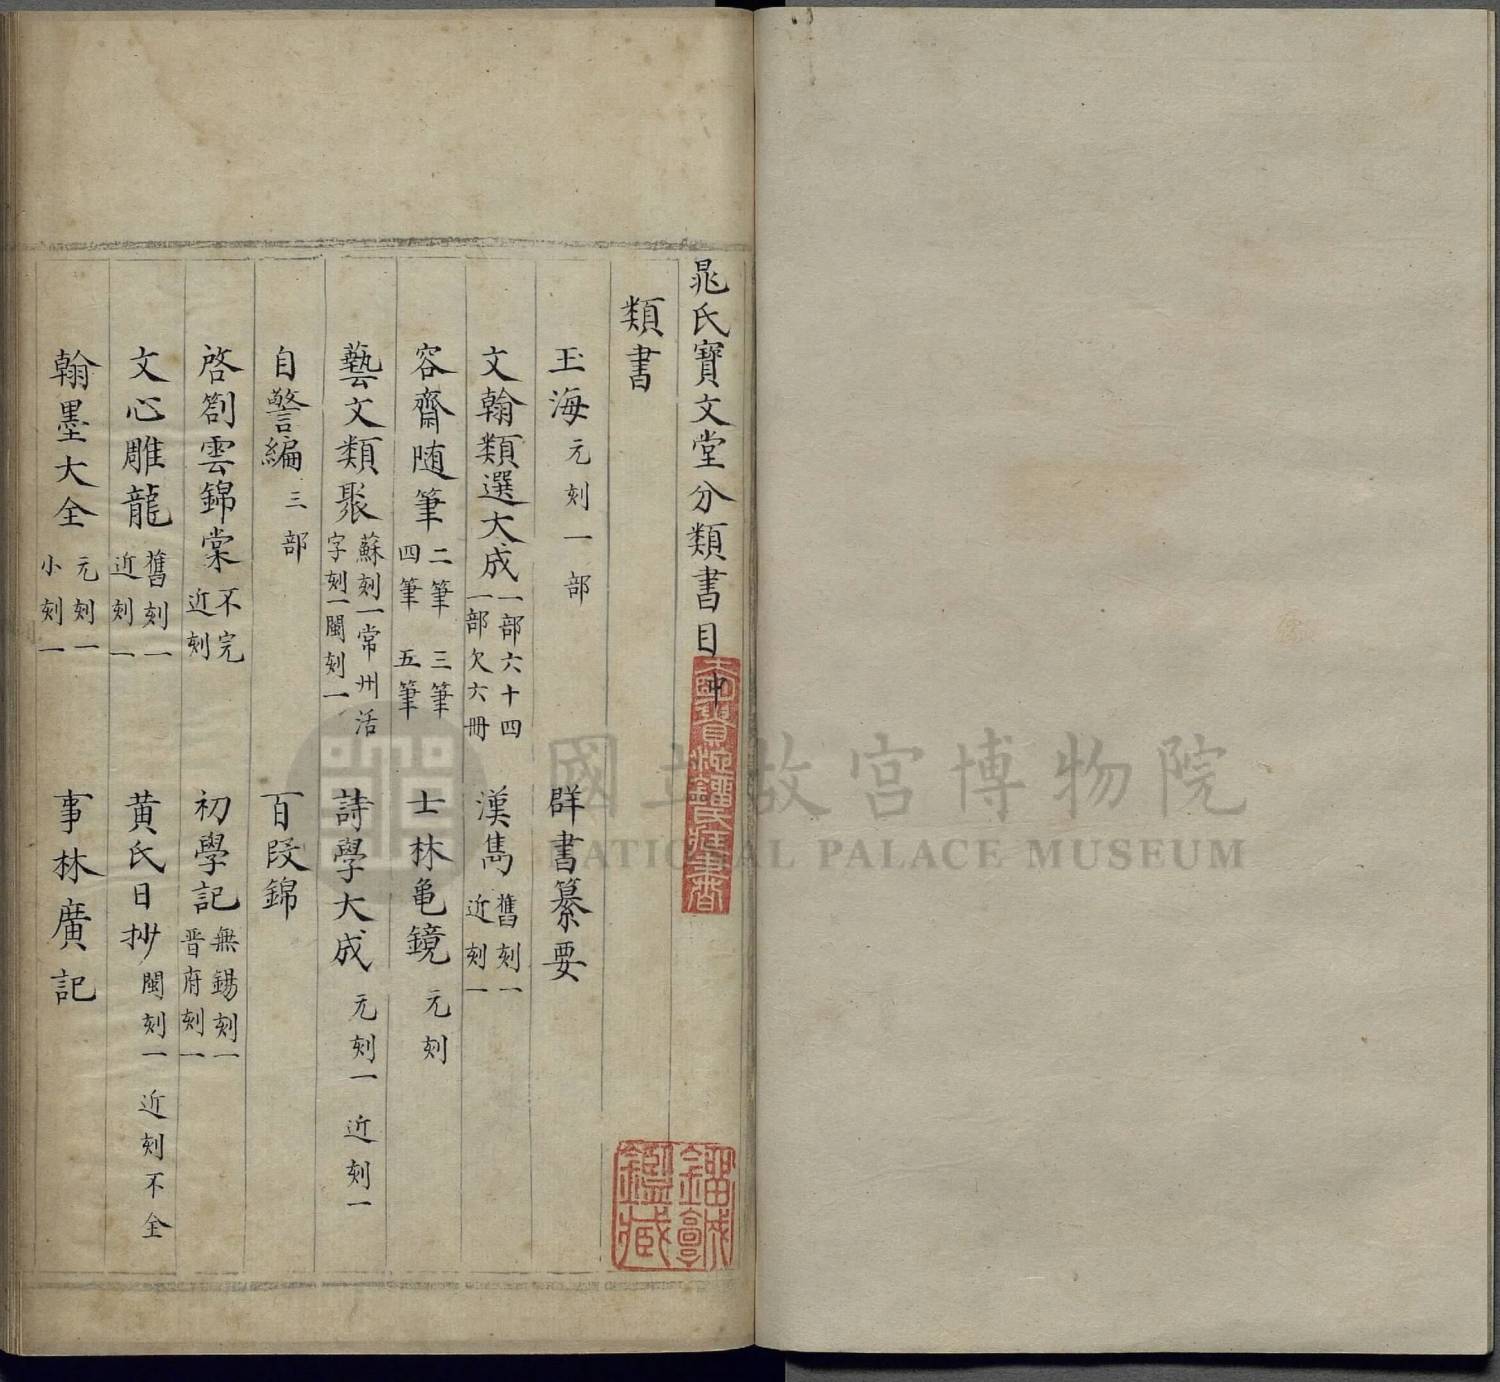 晁氏寶文堂分類書目中
類書
玉海 元刻一部 群書纂要
文翰類選大成 一部六十四 一部欠六冊 漢雋 舊刻一 近刻一
容齋随筆 二筆 三筆 四筆 五筆 士林亀鏡 元刻
藝文類聚 蘇刻一常州活 字刻一閩刻一 詩學大成 元刻一 近刻一
自警編 三部 百段錦
啓劄雲錦棠 不完 近刻 初學記 無錫刻一 晋府刻一
文心雕龍 舊刻一 近刻一 黄氏日抄 閩刻一 近刻不全
翰墨大全 元刻一 小刻一 事林廣記
鑑藏
國立故宮博物院
NATIONAL PALACE MUSEUM